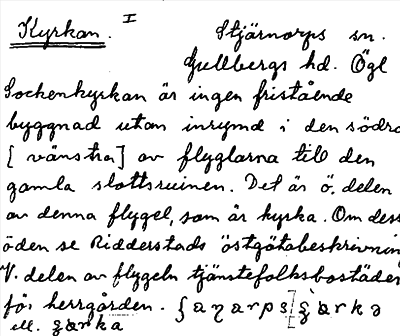 Kyrkan. I Stjärnorps sn.
Gullbergs hd. Ögl
Sockenkyrkan är ingen fristående
byggnad utan inrymd i den södra
[vänstra] av flyglarna till den
gamla slottsruinen. Det är ö. delen
av denna flygel, som är kyrka. Om dess
öden se Ridderstads östgötabeskrivning
V. delen av flygeln tjänstefolksbostäder
för herrgården.
ell.